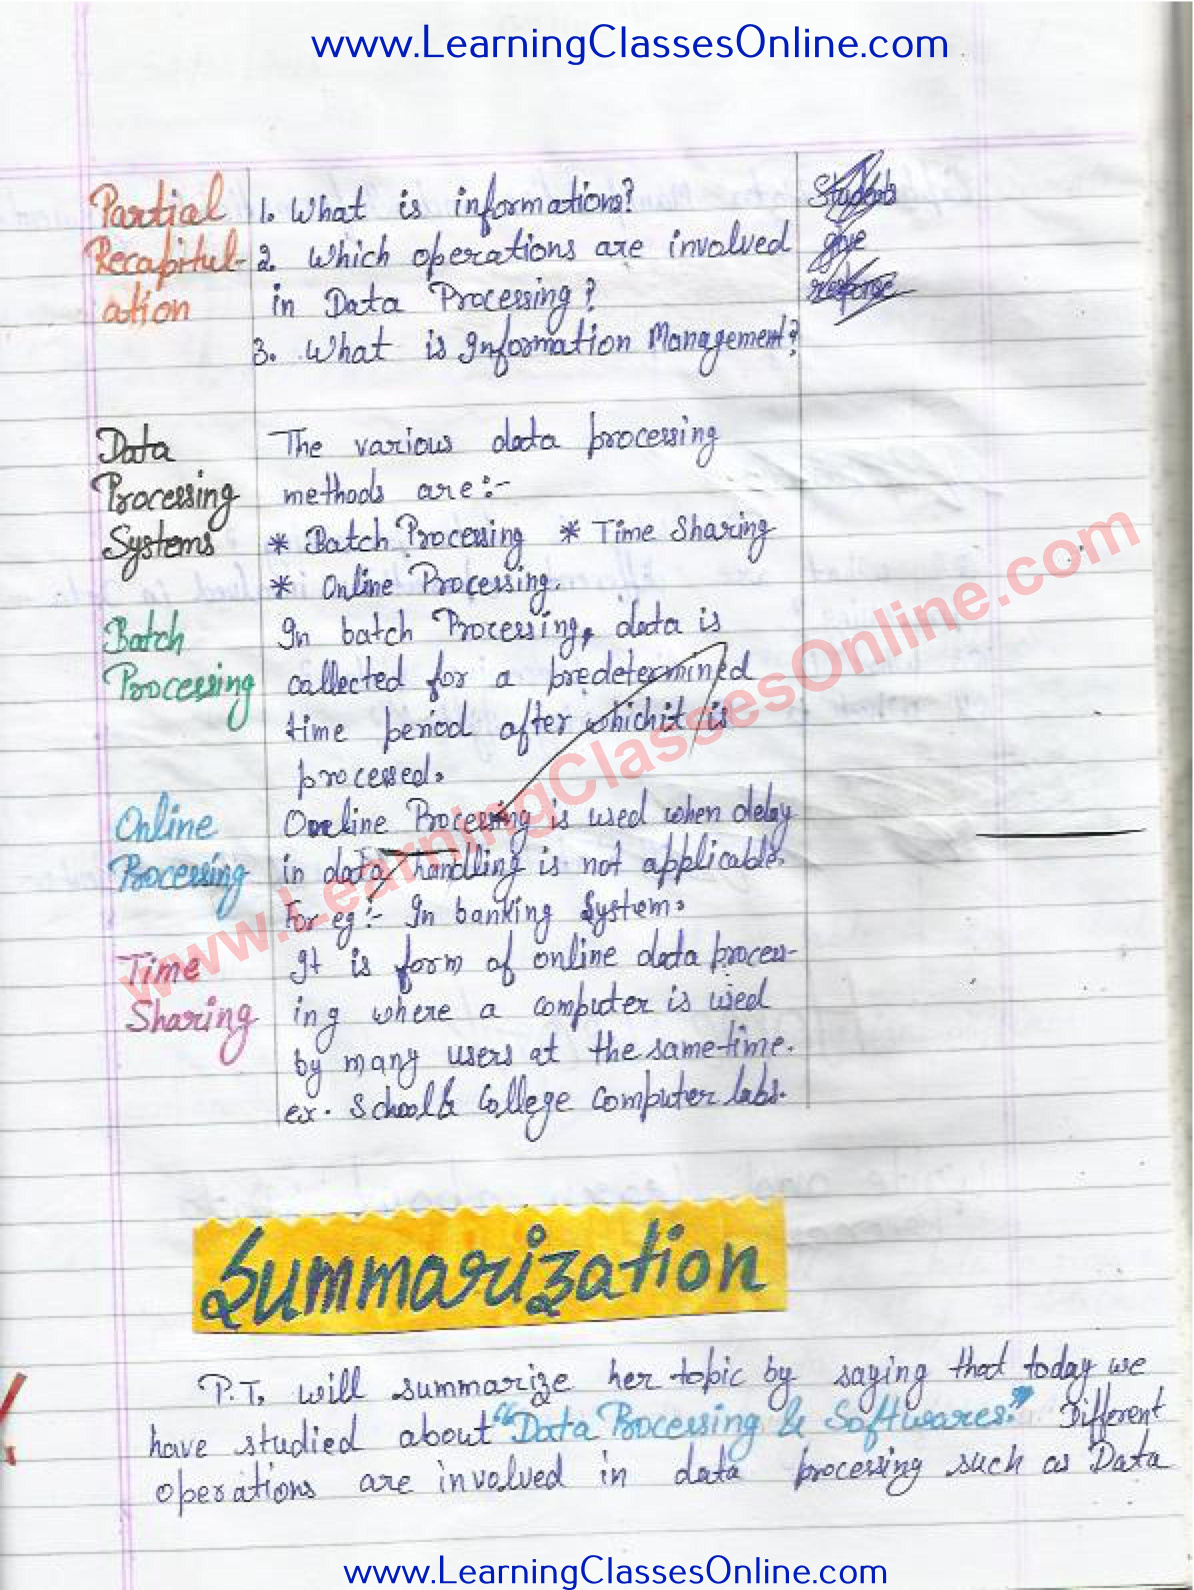 www.LearningClassesOnline.com
Partial 1. What is informations? Students
Recapitul- 2. Which operations are involved give
ation in Data Processing? response
3. What is Information Management?
Data The various data processing
Processing methods are:-
Systems * Batch Processing * Time Sharing
* Online Processing.
Batch In batch Processing, data is
Processing collected for a predetermined
time period after which it is
processed.
Online Online Processing is used when delay
Processing in data handling is not applicable.
For eg:- In banking System.
Time It is form of online data process-
Sharing ing where a computer is used
by many users at the same time.
ex. School & College Computer labs.
www.LearningClassesOnline.com
Summarization
P.T. will summarize her topic by saying that today we
have studied about "Data Processing & Softwares." Different
operations are involved in data processing such as Data
www.LearningClassesOnline.com